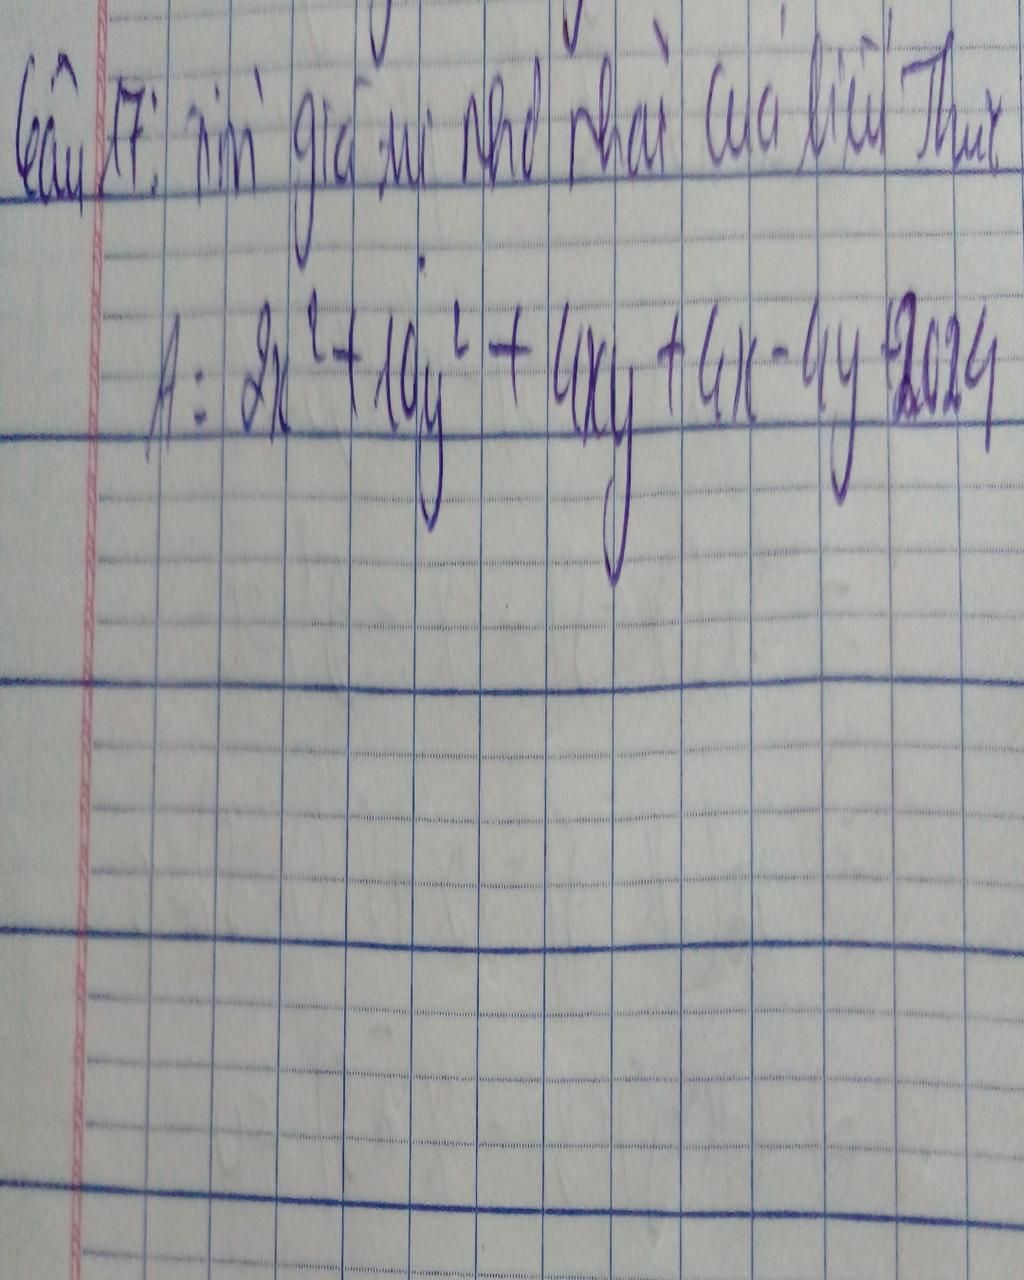 Câu 17: Tìm giá trị nhỏ nhất của biểu thức
A = 2x² + 10y² + 4xy + 4x - 4y + 2024